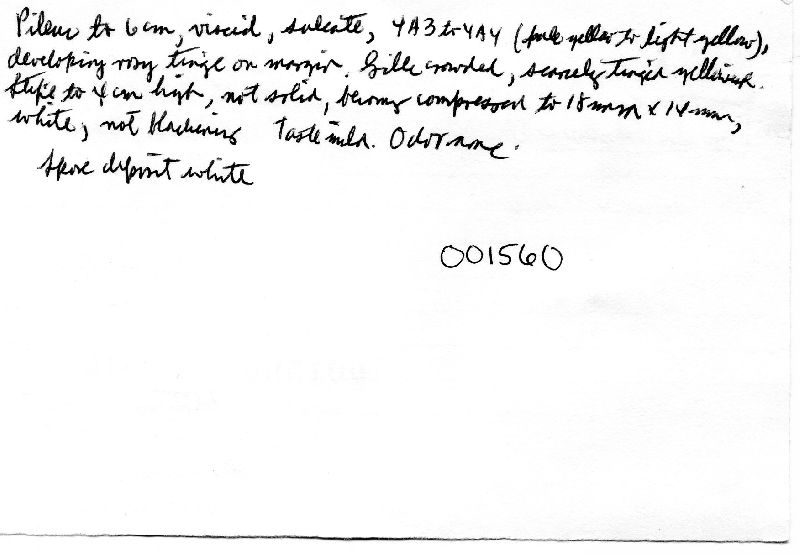 Pileus to 6 cm, viscid, sulcate, 4A3 to 4A4 (pale yellow to light yellow),
developing rosy tinge on margin. Gills crowded, scarcely tinged yellowish.
Stipe to 4 cm high, not solid, becoming compressed to 18 mm x 14 mm,
white, not blackening Taste mild. Odor none.
Spore deposit white
001560